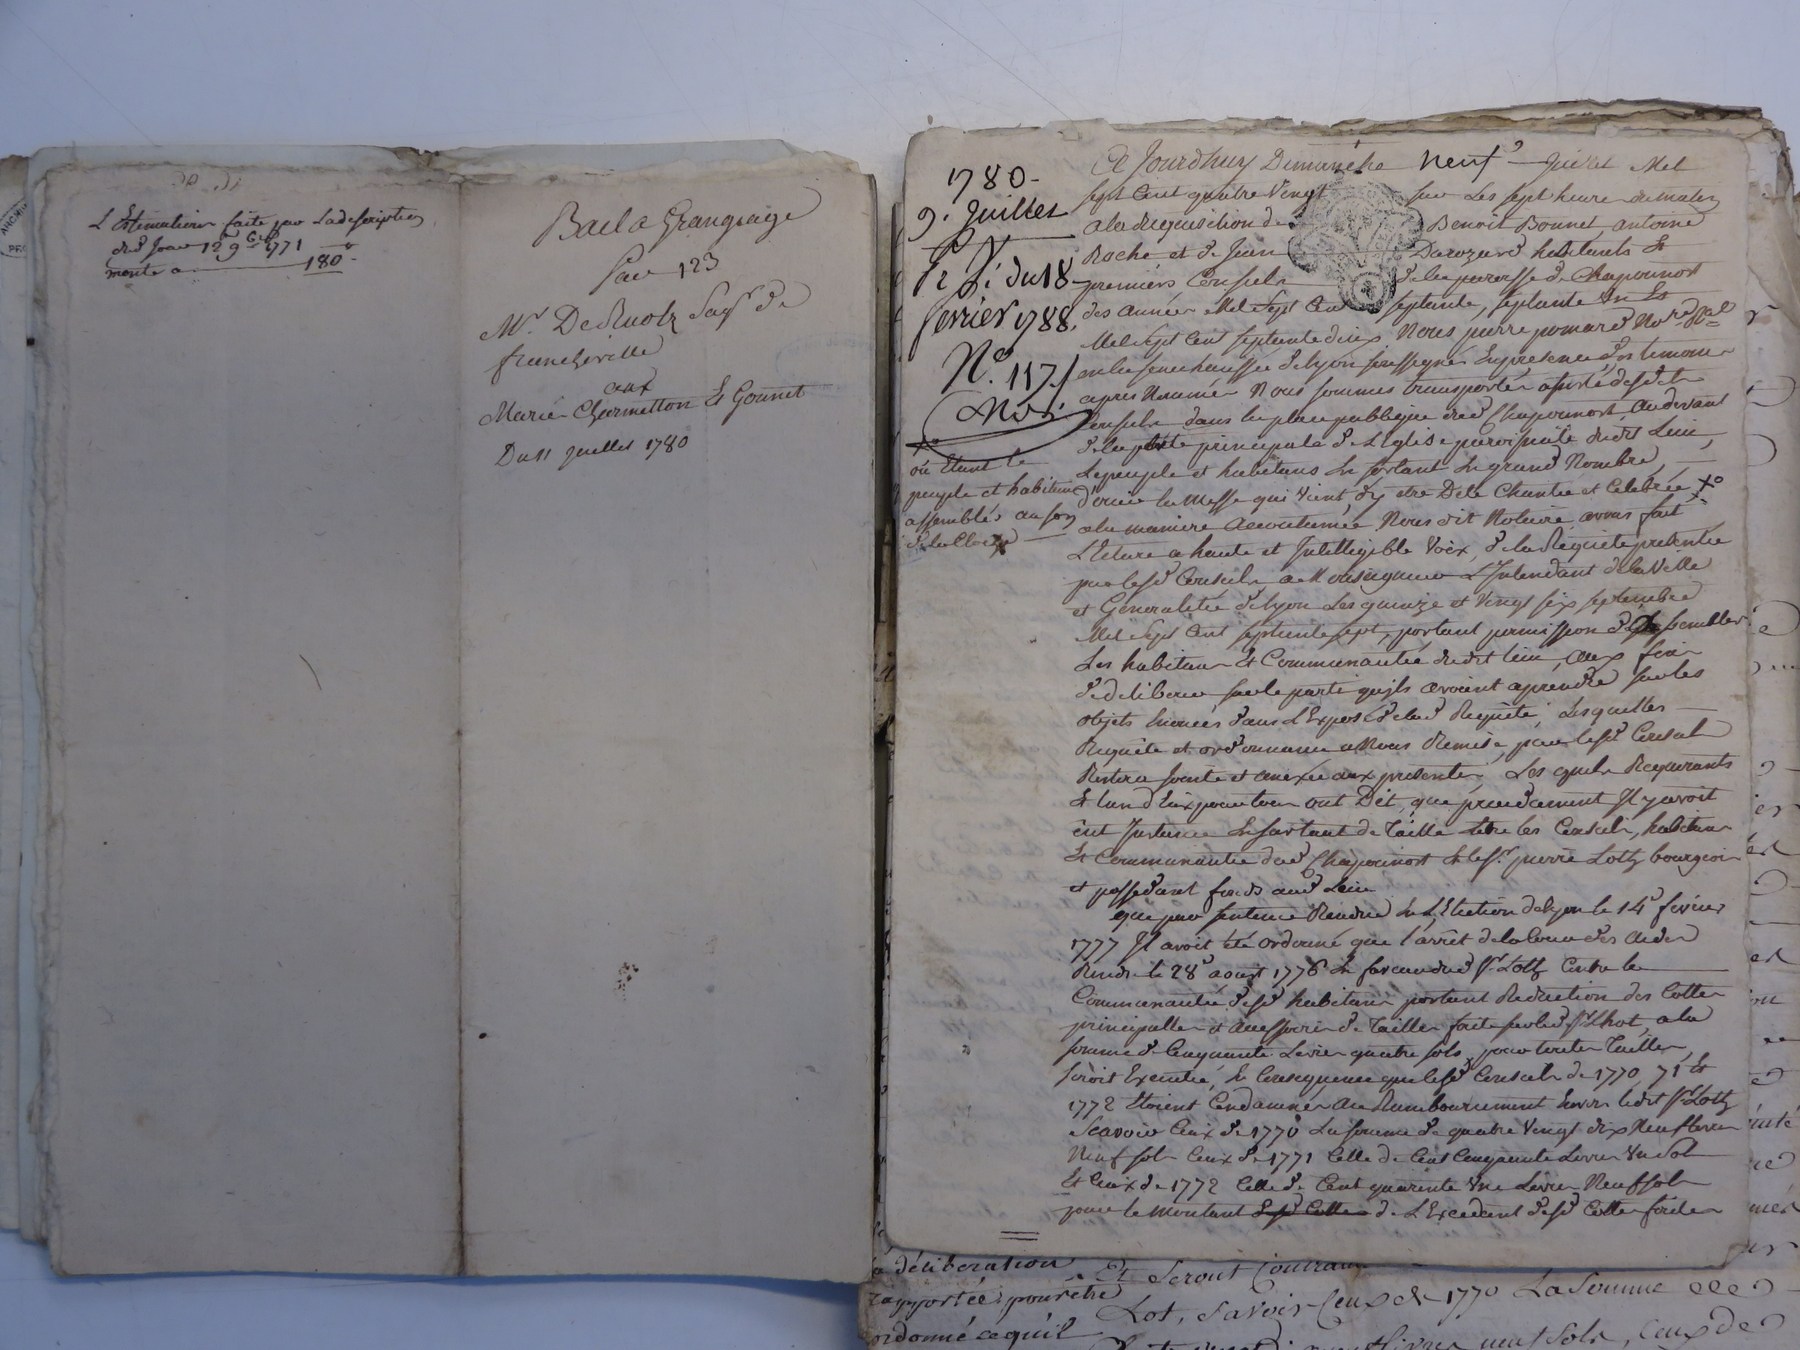 L'Estimation faite par La description
dud Jour 12 9bre 1771
monte a 180
Bail a Grangeage
Pour 123
Mr. DeRuolz Sagr de
francheville
aux
Mariés Charmetton Et Gonnet
Du 11 Juillet 1780
1780.
9. Juillet
du 18
fevrier 1788,
No. 117
où Etant le
peuple et habitans
assemblés au son
de la Cloche
Ce Jourdhuy Dimanche neuf Juillet Mil
sept Cent quatre Vingt sur Les sept heure du matin
a la Requisition de Benoit Bonnet, antoine
Roche et de Jean Darozard habitants Et
premiers Consuls de la parroisse de Chaponost
des années Mil Sept Cent septante, septante un Et
Mil Sept Cent septante deux Nous pierre pomard No.re Ral
en la senechaussée de Lyon soussigné En presence des temoins
apres Nommés Nous sommes transporté a suite desdits
Consuls dans la place publique dud Chaponost, au devant
de la porte principale de L'Eglise parroissialle dudit Lieu,
Le peuple et habitans En sortant En grand Nombre
d'ouir la Messe qui Vient d'y etre Dite Chantée et Celebrée
a la maniere accoutumée Nous dit Notaire avons fait
L'Ecture a haute et Intelligible Voix, de la Requete presentée
par lesd Consuls a Monseigneur L'Intendant de la Ville
et Generalitée de Lyon Les quinze et Vingt six septembre
Mil Sept Cent septante sept, portant permission d'assembler
Les habitans Et Communautée dudit lieu, aux fins
de deliberer sur le parti quils avoient aprendre sur les
objets Enoncés dans L'Exposé de lad Requête, Lesquelles
Requête et ordonnance a Nous Remise par lesd Consuls
Restera Jointe et anexée aux presentes. Les quels Requerants
Et lun d'Eux pour tous ont Dit, que precedament Il y avoit
eut Instance En sortant de Taille Entre les Consuls, habitans
Et Communautée dud Chaponost Et le Sr. pierre Lotz bourgeois
et possedant fonds aud Lieu
que par sentence Rendue En L'Election de Lyon le 14 fevrier
1777 Il avoit été ordonné que l'arrêt de la Cour des aides
Rendu le 28 aoust 1776 En faveur dud Sr. Lotz Contre la
Communautée desd habitans portant Reduction des Cottes
principalles et accessoires de Tailles faite sur led Sr Lhot, a la
somme de Cinquante Livres quatre sols, pour toutes Tailles,
seroit Executé, En Consequence que lesd Consuls de 1770 71 Et
1772 Etoient Condamnés au Rembourcement Envers ledit Sr Lotz
Scavoir Ceux de 1770 La somme de quatre Vingt dix Neuf livres
Neuf sols Ceux de 1771 Celle de Cent Cinquante Livres Un Sol
Et Ceux de 1772 Celle de Cent quarente Une Livres Neuf sols
pour le montant de L'Excedent desd Cottes faites
déliberation
rapportée, pour être
ordonné ce qu'il
Et Seront Contraints
Lot, Savoir Ceux de 1770 La Somme
neuf Sols, Ceux de